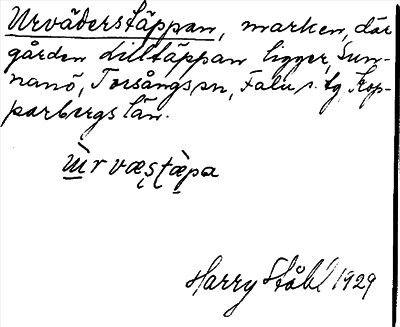 Urväderstäppan, marken, där
gården Lilltäppan ligger, Sun-
nanö, Torsångs sn, Falu s. tg, Kop-
parbergs län.
ùr væs̨tæ̀pa
Harry Ståhl 1929